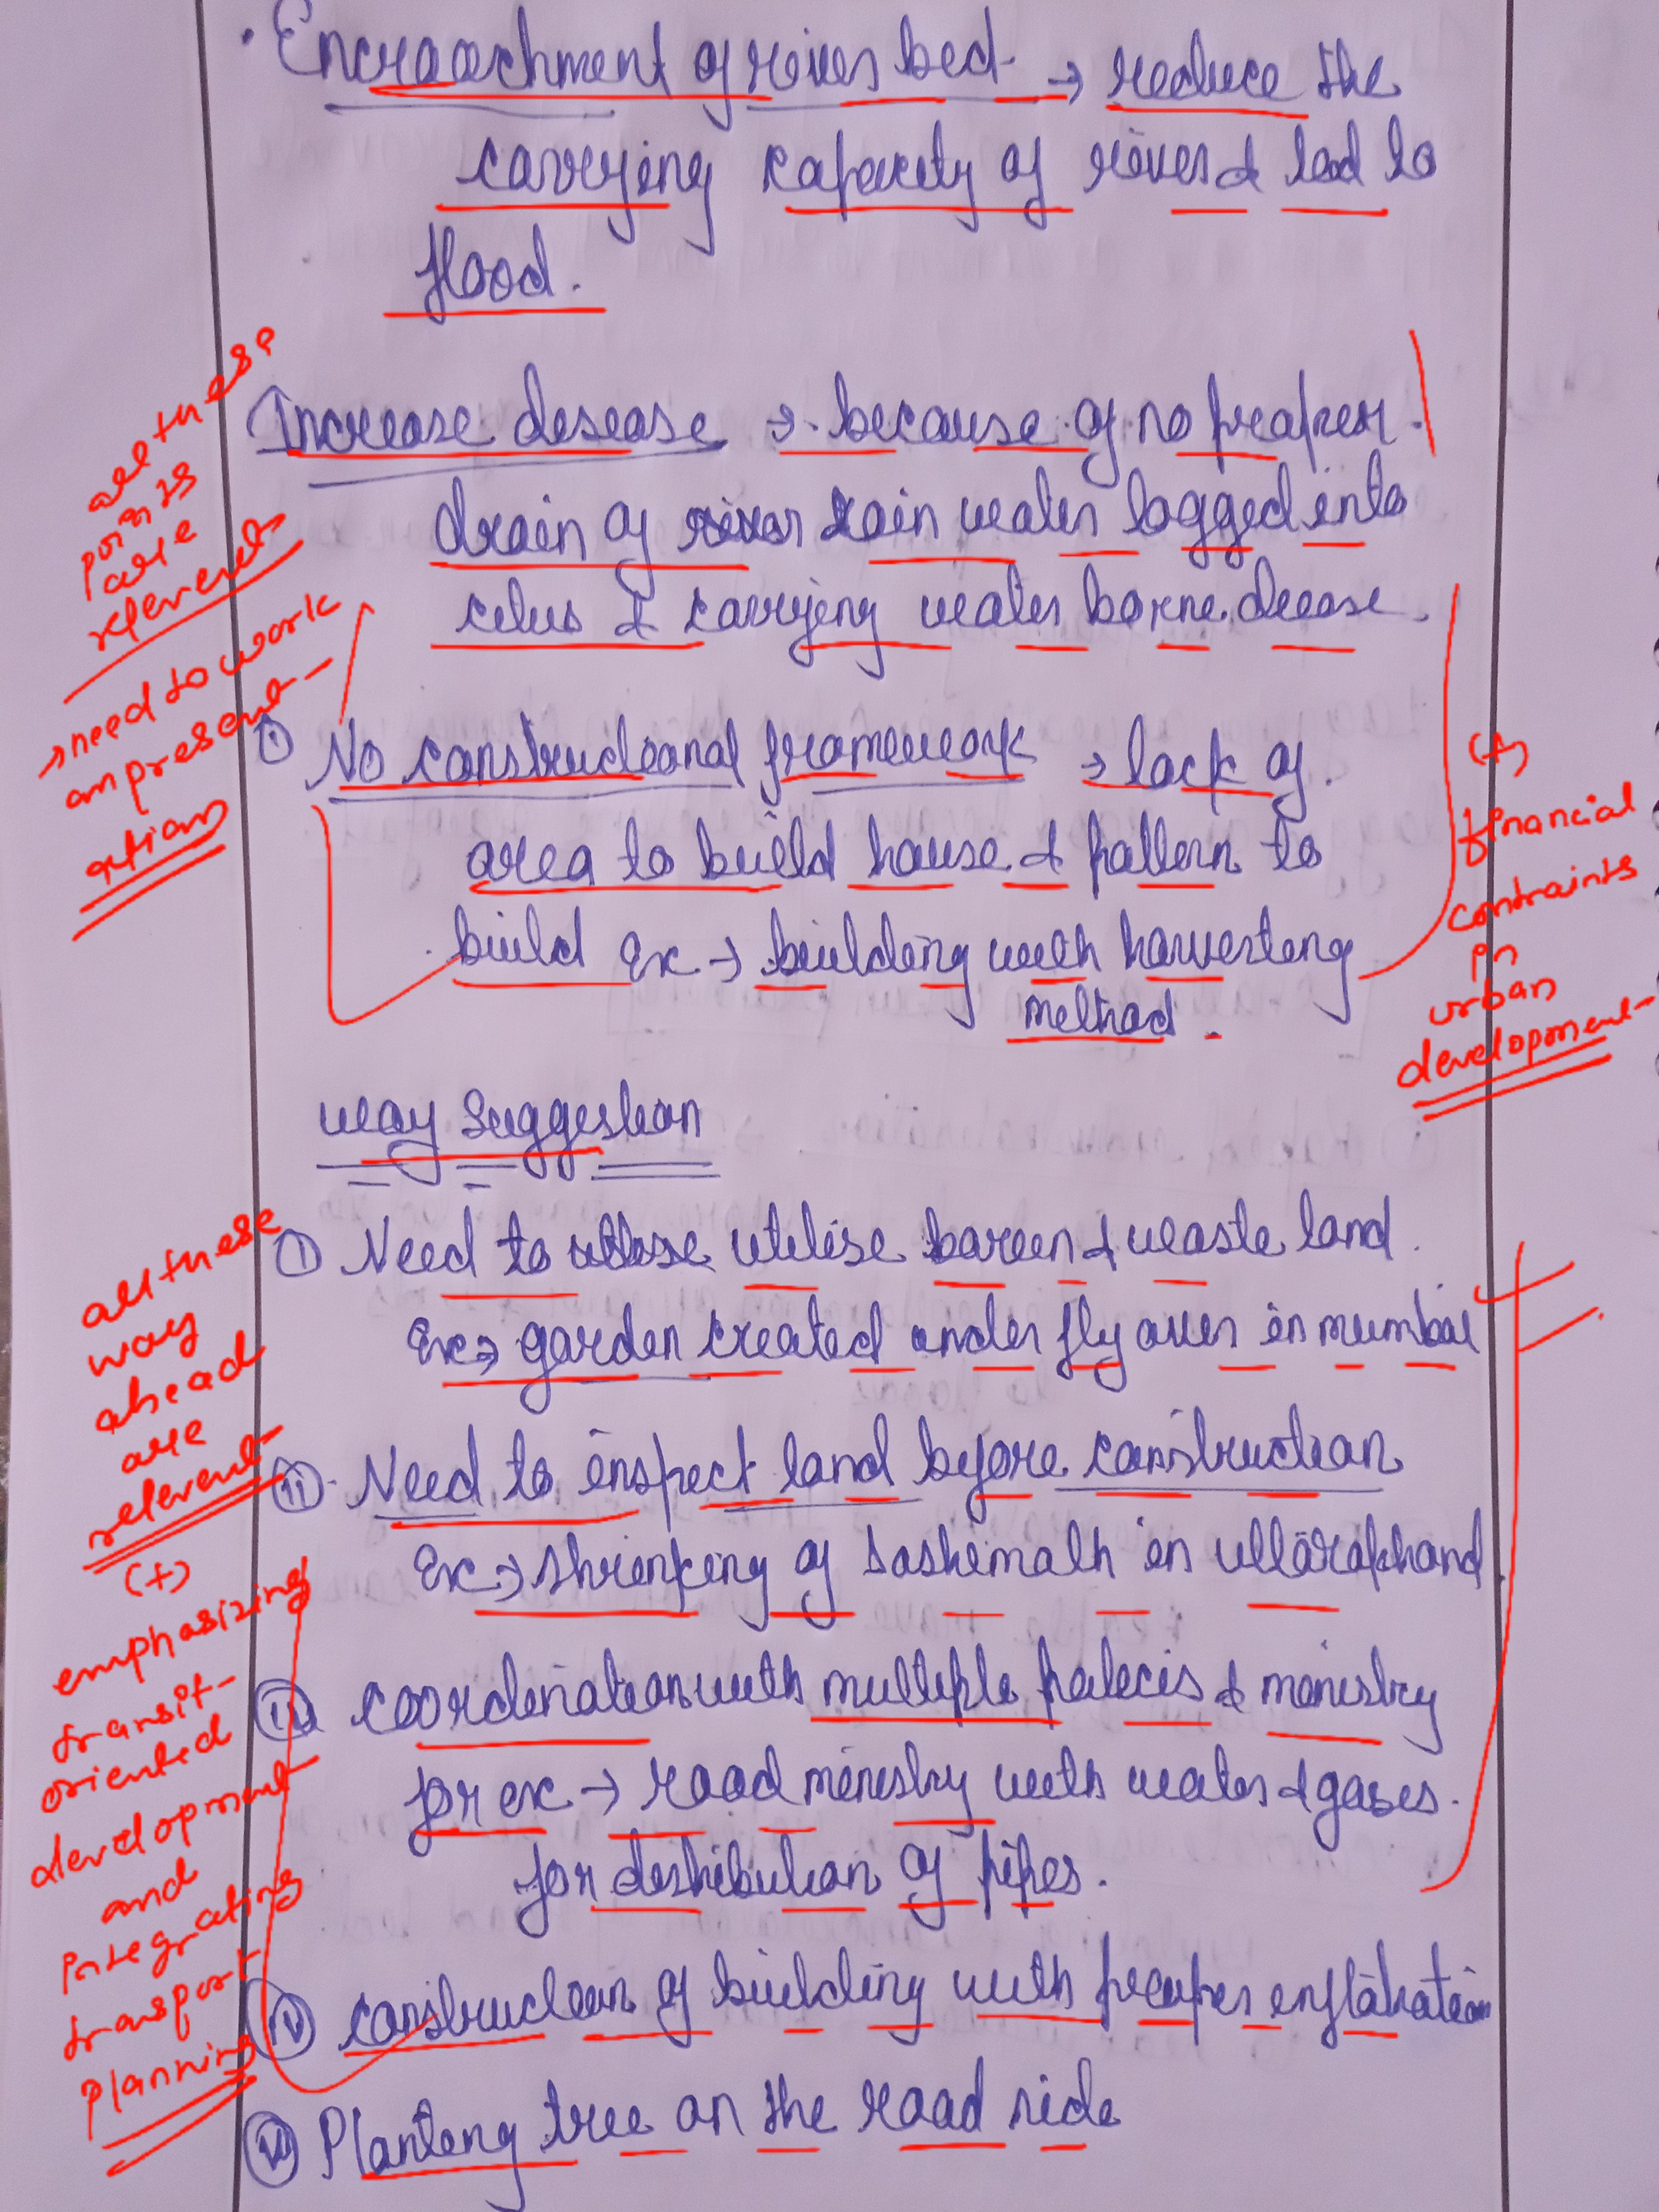 • Encroachment of river bed → reduce the
carrying capacity of river & lead to
flood.
Increase desease → because of no proper
drain of river rain water logged into
& carrying water borne disease.
all these
points
are
relevent
→ need to work
on present-
ation
① No constructional framework → lack of
area to build house & pattern to
build Ex → building with harvesting
method.
(+)
financial
contraints
in
urban
development
way suggestion
① Need to utilise baren & waste land.
Ex → garden created under fly over in mumbai
⑪ Need to inspect land before construction
Ex → shrinking of Joshimath in uttarakhand
coordination with multiple policis & ministry
for ex → road ministry with water & gases
for distribution of pipes.
ⓘⓥ construction of building with proper
Planting tree on the road side
all these
way
ahead
are
relevent
(+)
emphasizing
transit-
oriented
development
and
integrating
transport
planning